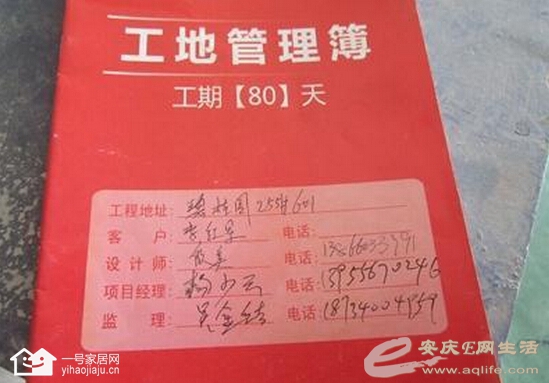 工地管理簿
工期【80】天
工程地址: 碧桂园255#601
客 户: 李红星 电话:
设计师: 电话: 13866033391
项目经理: 杨小云 电话: 13955670246
监 理: 吴金结 电话: 18734004959
一号家居网
yihaojiaju.cn
安庆E网生活
www.aqlife.com